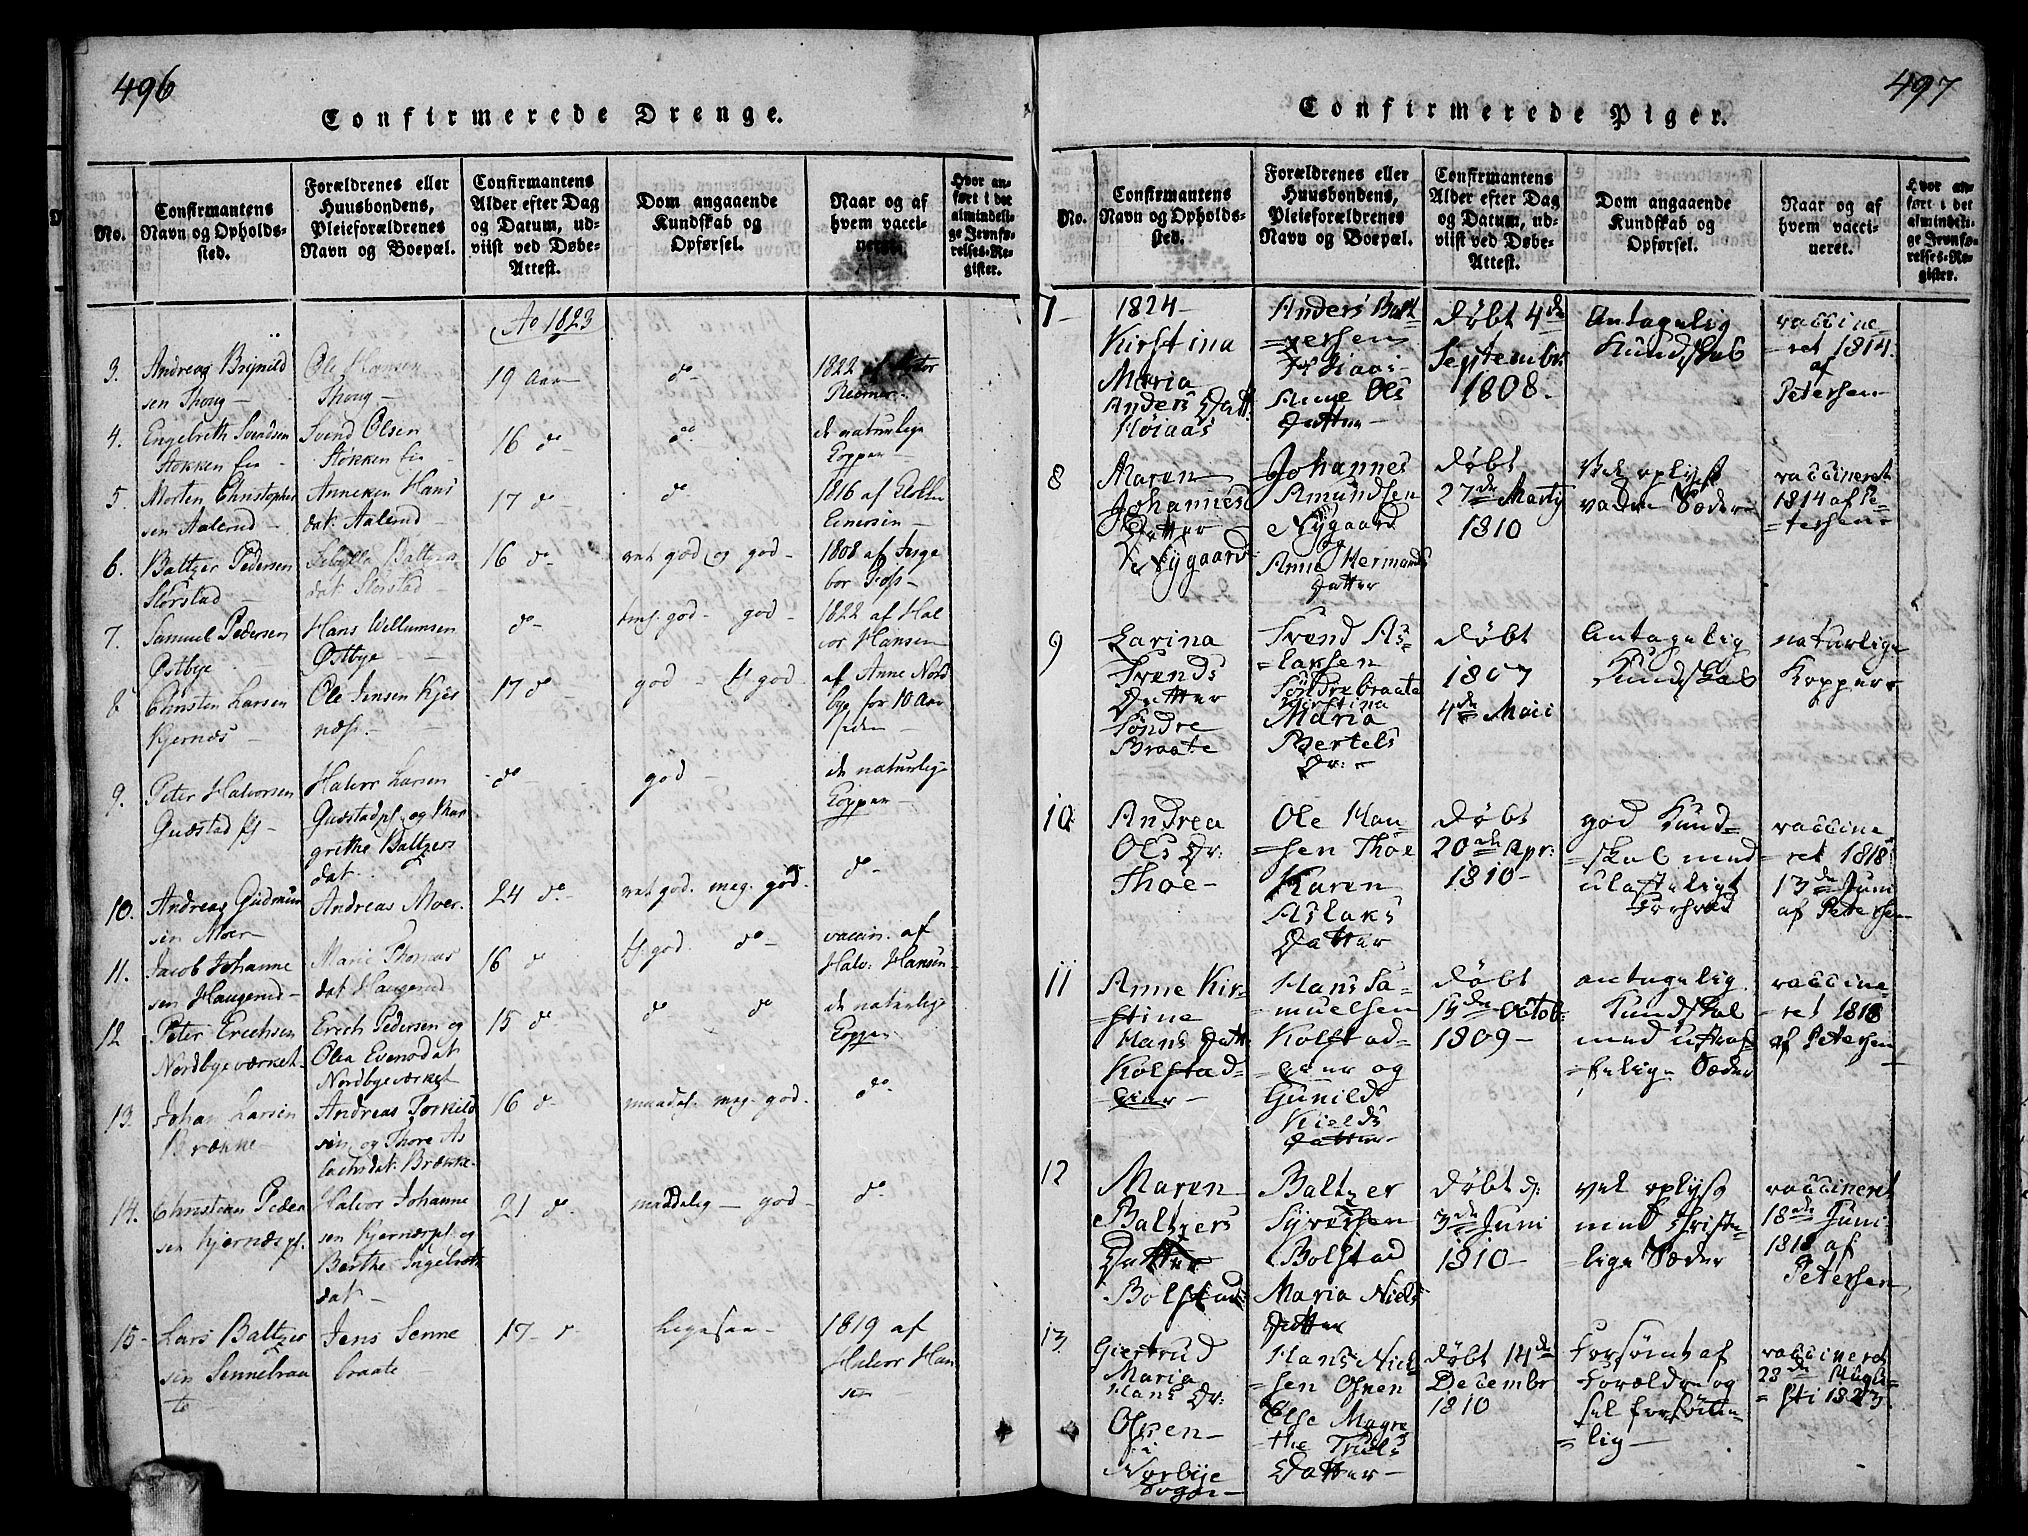 496
Confirmerede Drenge.
No.
Confirmantens
Navn og Opholds-
sted.
Forældrenes eller
Huusbondens,
Pleieforældrenes
Navn og Boepæl.
Confirmantens
Alder efter Dag
og Datum, ud-
viist ved Døbe-
Attest.
Dom angaaende
Kundskab og
Opførsel.
Naar og af
hvem vacci-
neret.
Hvor an-
ført i det
almindeli-
ge Jevnfø-
relses-Re-
gister.
Ao 1823
3.
Andreas Brynild
sen Thoug -
Ole Hansen
Thoug -
19 Aar
do -
1822 af
4.
Engelreth Svendsen
Stokken Eie -
Svend Olsen
Stokken Eie -
16 do
do
de naturlige
Kopper -
5.
Morten Christopher
sen Aalerud -
Anneken Hans
dat. Aalerud
17 do -
do
1816 af
Einersen -
6.
Baltzer Pedersen
Storstad -
Baltzers
dat. Storstad -
16 do
god og god -
1808 af Inge
bor Foss -
7.
Samuel Pedersen
Østbye
Hans Willumsen
Østbye -
do -
god - god -
1822 af Hal
vor Hansen
8
Christen Larsen
Kjernæs -
Ole Jensen Kjer
næs. -
17 do -
god - god
af Anne Nord
bye for 10 Aar
siden -
9.
Peter Halvorsen
Gudstad
Halvor Larsen
og Mar
grethe Baltzers
dat.
- do
god -
de naturlige
Kopper -
10.
Andreas Gudmun
sen Moer
Andreas Moer.
24 do -
god. meg. god.
do -
11.
Jacob Johanne
sen Haugerud -
Marie Thomas
dat Haugerud
16 do
god. do -
vaccin. af
Halv: Hansen
12
Peter Erichsen
Nordbyeværket -
Erich Pedersen og
Olea Evensdat
Nordbyeværket
15 do -
do do
de naturlige
Kopper
13.
Johan Larsen
Brække -
Andreas Torkild
sen og Thore As
lachsdat. Brække -
16 do -
maadel. meg. god -
do -
14.
Christian Peder
sen Kjernæs pl.
Halvor Johanne
sen Kjernæs pl. og
Berthe Ingebreth
dat -
21 do -
maadelig - god -
do -
15 -
Lars Baltzer
sen Sennebraa
te
Jens Senne
braate
17 - do
Ligesaa -
1819 af
Halvor Han
sen
497
Confirmerede Piger.
No.
Confirmantens
Navn og Opholds-
sted.
Forældrenes eller
Huusbondens,
Pleieforældrenes
Navn og Boepæl.
Confirmantens
Alder efter Dag
og Datum, ud-
viist ved Døbe-
Attest.
Dom angaaende
Kundskab og
Opførsel.
Naar og af
hvem vacci-
neret.
Hvor an-
ført i det
almindeli-
ge Jevnfø-
relses-Re-
gister.
7 -
1824 -
Kirstina
Maria
Anders Datt:
Høiaas
Anders Balt
=zersen
Høiaas
Anne Ols
Datter
Døbt 4de
Septembr.
1808.
Antagelig
Kundskab
vaccine=
=ret 1814.
af
Petersen
8
Maren
Johannes
Datter
Nygaard
Johannes
Amundsen
Nygaard
og
Anne Hermands
Datter
Døbt
27de Marty
1810
Vel oplyst
Sæder
vaccineret
1814 af Pe
=tersen -
9
Karina
Svends
Datter
Søndre
Braate
Svend As=
=laksen
Søndrebraate
Kirstina
Maria
Bertels
Dr: -
Døbt
1807
4de Maii
Antagelig
Kundskab
naturlige
Kopper
10
Andrea
Ols Dr:
Thoe -
Ole Han=
=sen Thoe
Karen
Aslaks
Datter
Døbt
20de Apr:
1810 -
god Kund=
=skab med
ulasteligt
Forhold
vaccine
=ret 1818
13de Juni
af Petersen
11
Anne Kir=
=stine
Hans Datt:
Kolstad=
=eier -
Hans Sa=
muelsen
Kolstad=
=eier og
Gunild
Kields
Datter -
Døbt
15de Octob:
1809 -
antagelig
Kundskab
med ustraf=
=felige Sæder
vaccine=
=ret 1818
af Petersen
12
Maren
Baltzers
Datter
Bolstad
Baltzer
Syversen
Bolstad
Maria Niels
Datter
Døbt d:
3de Juni
1810 -
vel oplyst
med christe=
=lige Sæder
vaccineret
18de Juni
1818 af
Petersen
13
Giertrud
Maria
Hans Dr:
Opsen -
i
Norbye
Sogn -
Hans Niel
=sen Opsen
Else Magre
=the Truls
Datter -
Døbt 14de
Decembr
1810
Forsømt af
Forældre og
sel
=lig -
vaccineret
23de Augu=
=sti 1823